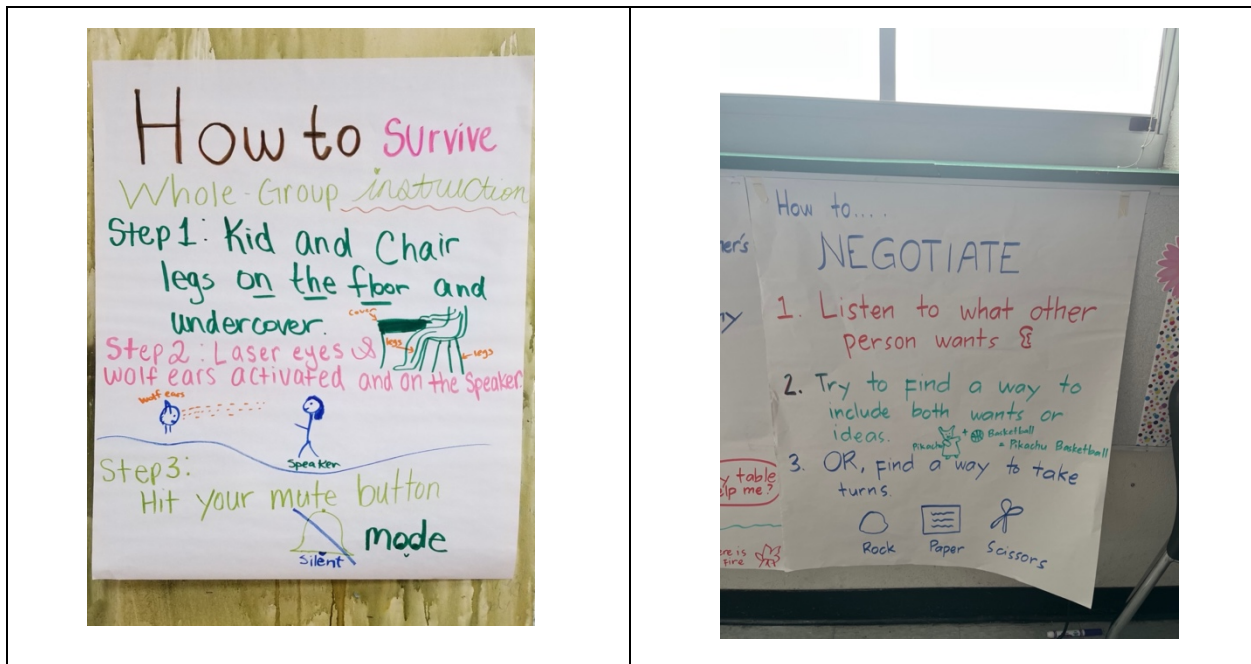 How to survive
Whole-Group instruction
Step 1: Kid and Chair
legs on the floor and
undercover.
cover
legs
legs
Step 2: Laser eyes &
wolf ears activated and on the Speaker.
wolf ears
Speaker
Step 3:
Hit your mute button
Silent
mode
How to....
NEGOTIATE
1. Listen to what other
person wants
2. Try to find a way to
include both wants or
ideas.
Pikachu + Basketball
= Pikachu Basketball
3. OR, find a way to take
turns.
Rock Paper Scissors
er's
y table
elp me?
ere is
fire